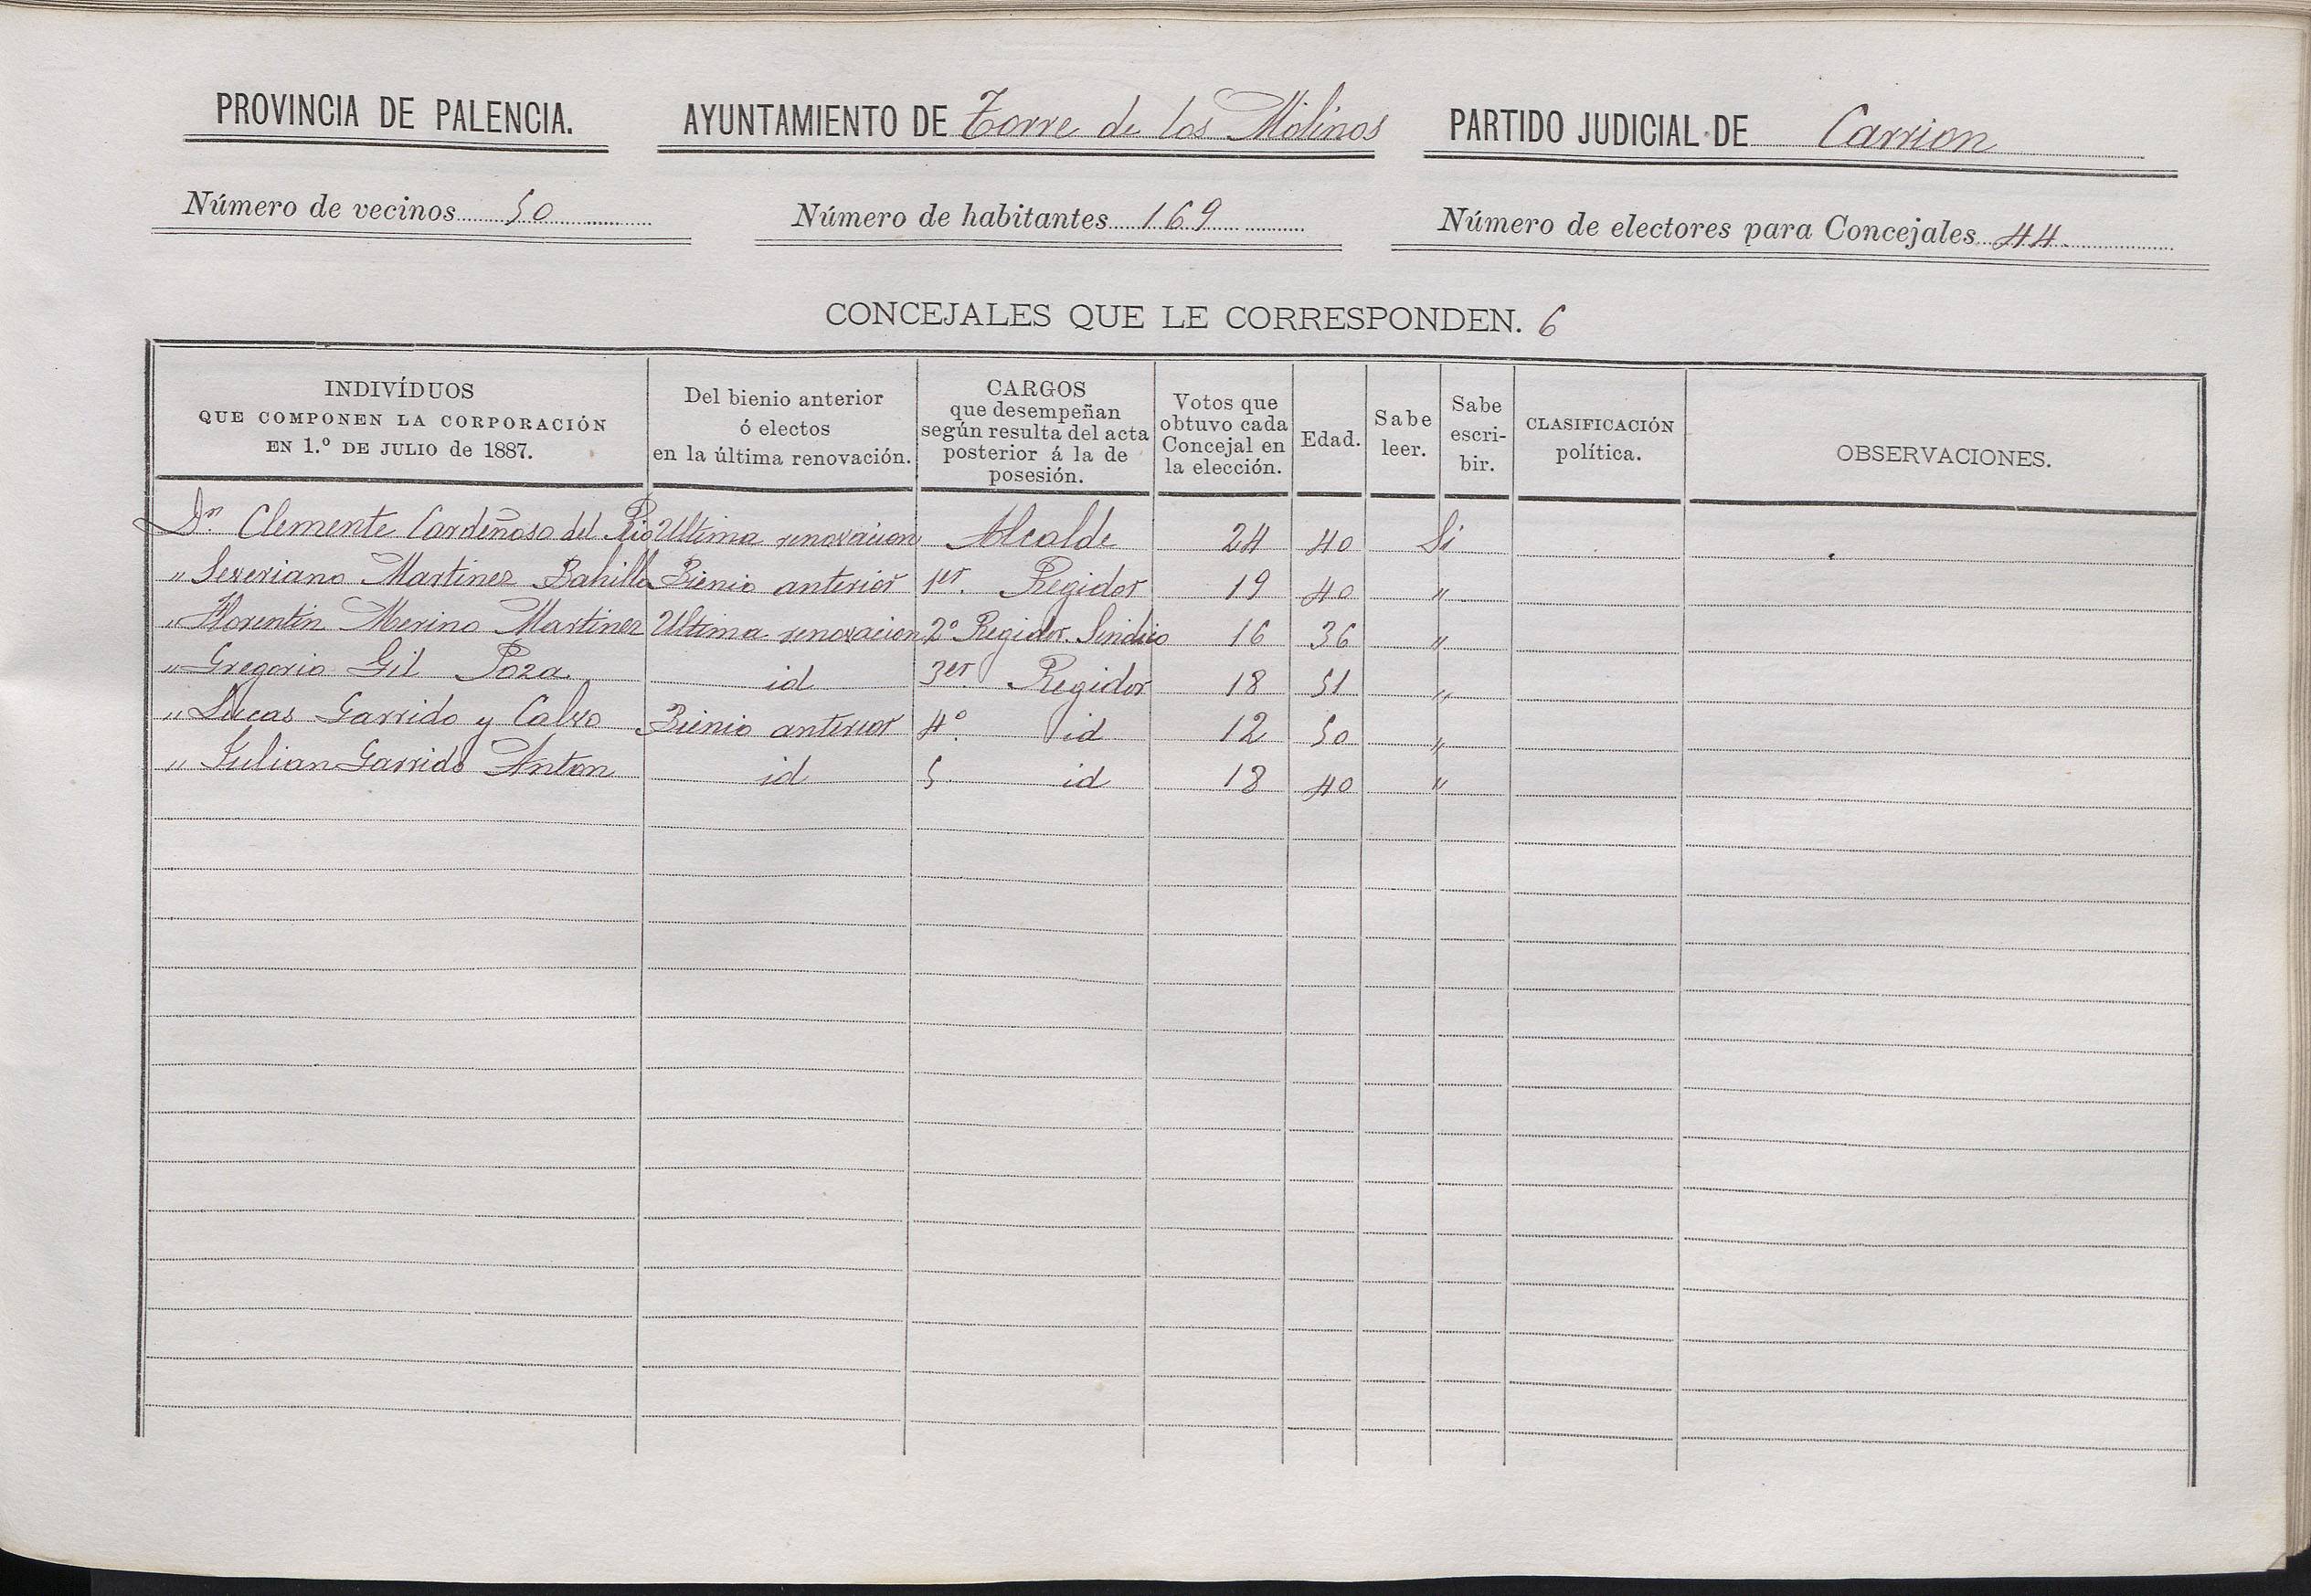 PROVINCIA DE PALENCIA. AYUNTAMIENTO DE Torre de los Molinos PARTIDO JUDICIAL DE Carrion
Número de vecinos 50 Número de habitantes 169 Número de electores para Concejales 44.
CONCEJALES QUE LE CORRESPONDEN. 6
INDIVÍDUOS
QUE COMPONEN LA CORPORACIÓN
EN 1.º DE JULIO de 1887.
Del bienio anterior
ó electos
en la última renovación.
CARGOS
que desempeñan
según resulta del acta
posterior á la de
posesión.
Votos que
obtuvo cada
Concejal en
la elección.
Edad.
Sabe
leer.
Sabe
escri-
bir.
CLASIFICACIÓN
política.
OBSERVACIONES.
Dn. Clemente Cardeñoso del Rio Ultima renovacion Alcalde 24 40 Si
" Severiano Martinez Bahillo Bienio anterior 1er. Regidor 19 40 "
" Florentin Merino Martinez Ultima renovacion 2º Regidor Sindico 16 36 "
" Gregorio Gil Poza. id 3er. Regidor 18 51 "
" Lucas Garrido y Calvo Bienio anterior 4º. id 12 50 "
" Julian Garrido Anton id 5. id 18 40 "